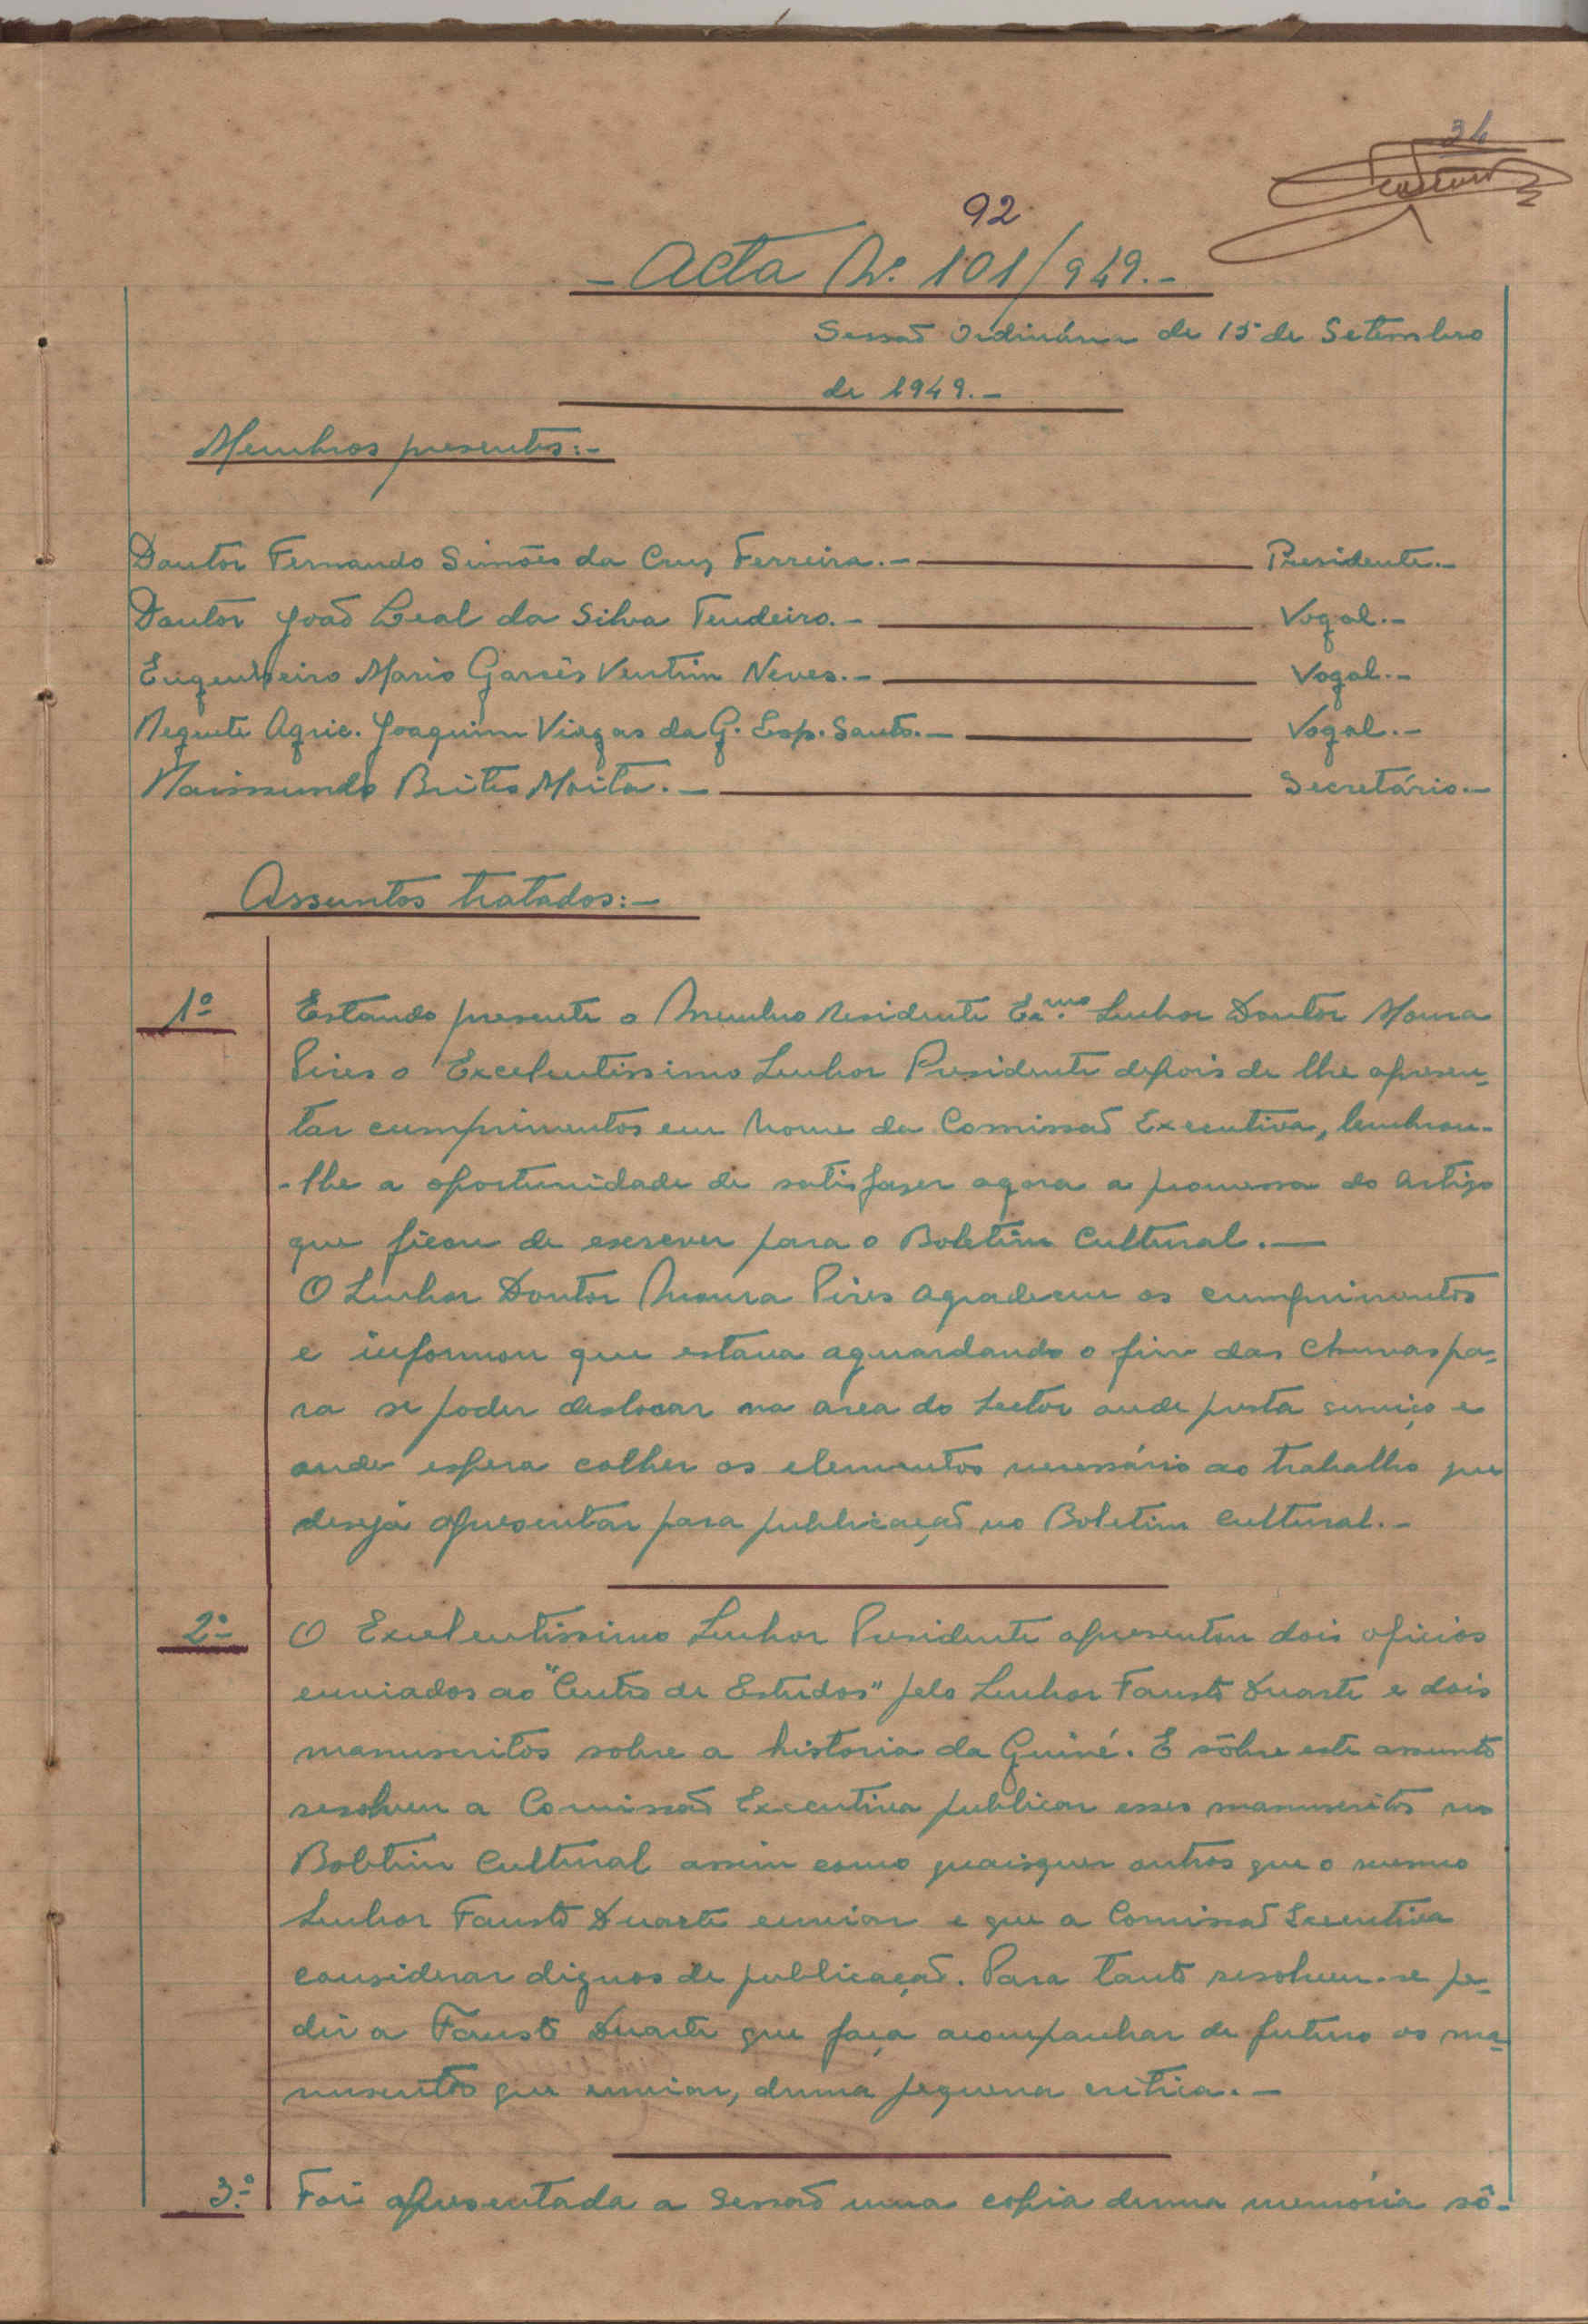 34
92
- Acta N.º 101/949.-
Sessão Ordinária de 15 de Setembro
de 1949.-
Membros presentes:-
Doutor Fernando Simões da Cruz Ferreira.- Presidente.-
Doutor João Leal da Silva Tendeiro.- Vogal.-
Engenheiro Mario Garcês Ventim Neves.- Vogal.-
Regente Agric. Joaquim Viegas da G. Esp. Santo.- Vogal.-
Raimundo Brites Moita.- Secretário.-
Assuntos tratados:-
1º Estando presente o Membro Residente Ex.mo Senhor Doutor Moura
Pires o Excelentissimo Senhor Presidente depois de lhe apresen-
tar cumprimentos em nome da Comissão Executiva, lembrou-
-lhe a oportunidade de satisfazer agora a promessa do artigo
que ficou de escrever para o Boletim Cultural.-
O Senhor Doutor Moura Pires agradeceu os cumprimentos
e informou que estava aguardando o fim das chuvas pa-
ra se poder deslocar na area do Sector onde presta serviço e
onde espera colher os elementos necessário ao trabalho que
deseja apresentar para publicação no Boletim Cultural.-
2º O Excelentissimo Senhor Presidente apresentou dois oficios
enviados ao "Centro de Estudos" pelo Senhor Fausto Duarte e dois
manuscritos sobre a historia da Guiné. E sôbre este assunto
resolveu a Comissão Executiva publicar esses manuscritos no
Boletim Cultural assim como quaisquer outros que o mesmo
Senhor Fausto Duarte enviar e que a Comissão Executiva
considerar dignos de publicação. Para tanto resolveu-se pe-
dir a Fausto Duarte que faça acompanhar de futuro os ma-
nuscritos que enviar, duma pequena critica.-
3.º Foi apresentada a Sessão uma copia duma memória sô-